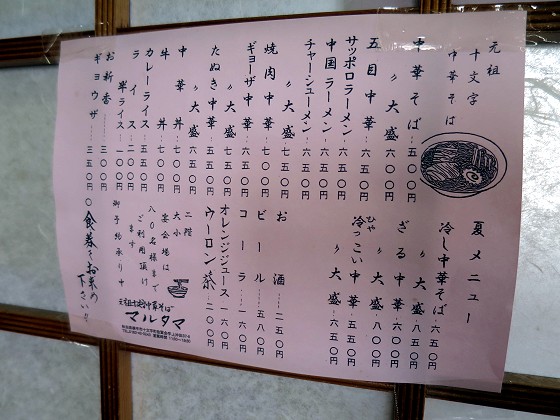 元祖
十文字
中華そば
中華そば……五〇〇円
〃大盛……六五〇円
五目中華……六五〇円
〃大盛……
サッポロラーメン……六五〇円
中国ラーメン……六五〇円
チャーシューメン……六五〇円
焼肉中華……六五〇円
〃大盛……七五〇円
ギョーザ中華……六五〇円
たぬき中華……五五〇円
〃大盛……六五〇円
中華丼……七〇〇円
牛丼……七〇〇円
カレーライス……五五〇円
ライス……二〇〇円
半ライス……一〇〇円
お新香……
ギョウザ……三五〇円
夏メニュー
冷し中華そば……六五〇円
〃大盛……八五〇円
ざる中華……六〇〇円
〃大盛……八〇〇円
ひや
冷っこい中華……五五〇円
〃大盛……六五〇円
お酒……二五〇円
ビール……五八〇円
コーラ……一六〇円
オレンジジュース……一六〇円
ウーロン茶……二〇〇円
二階
大小
宴会場は
八〇名様まで
ご利用頂け
ます
御予約承り中
○食券をお求め
下さい。
元祖十文字中華そば
マルタマ